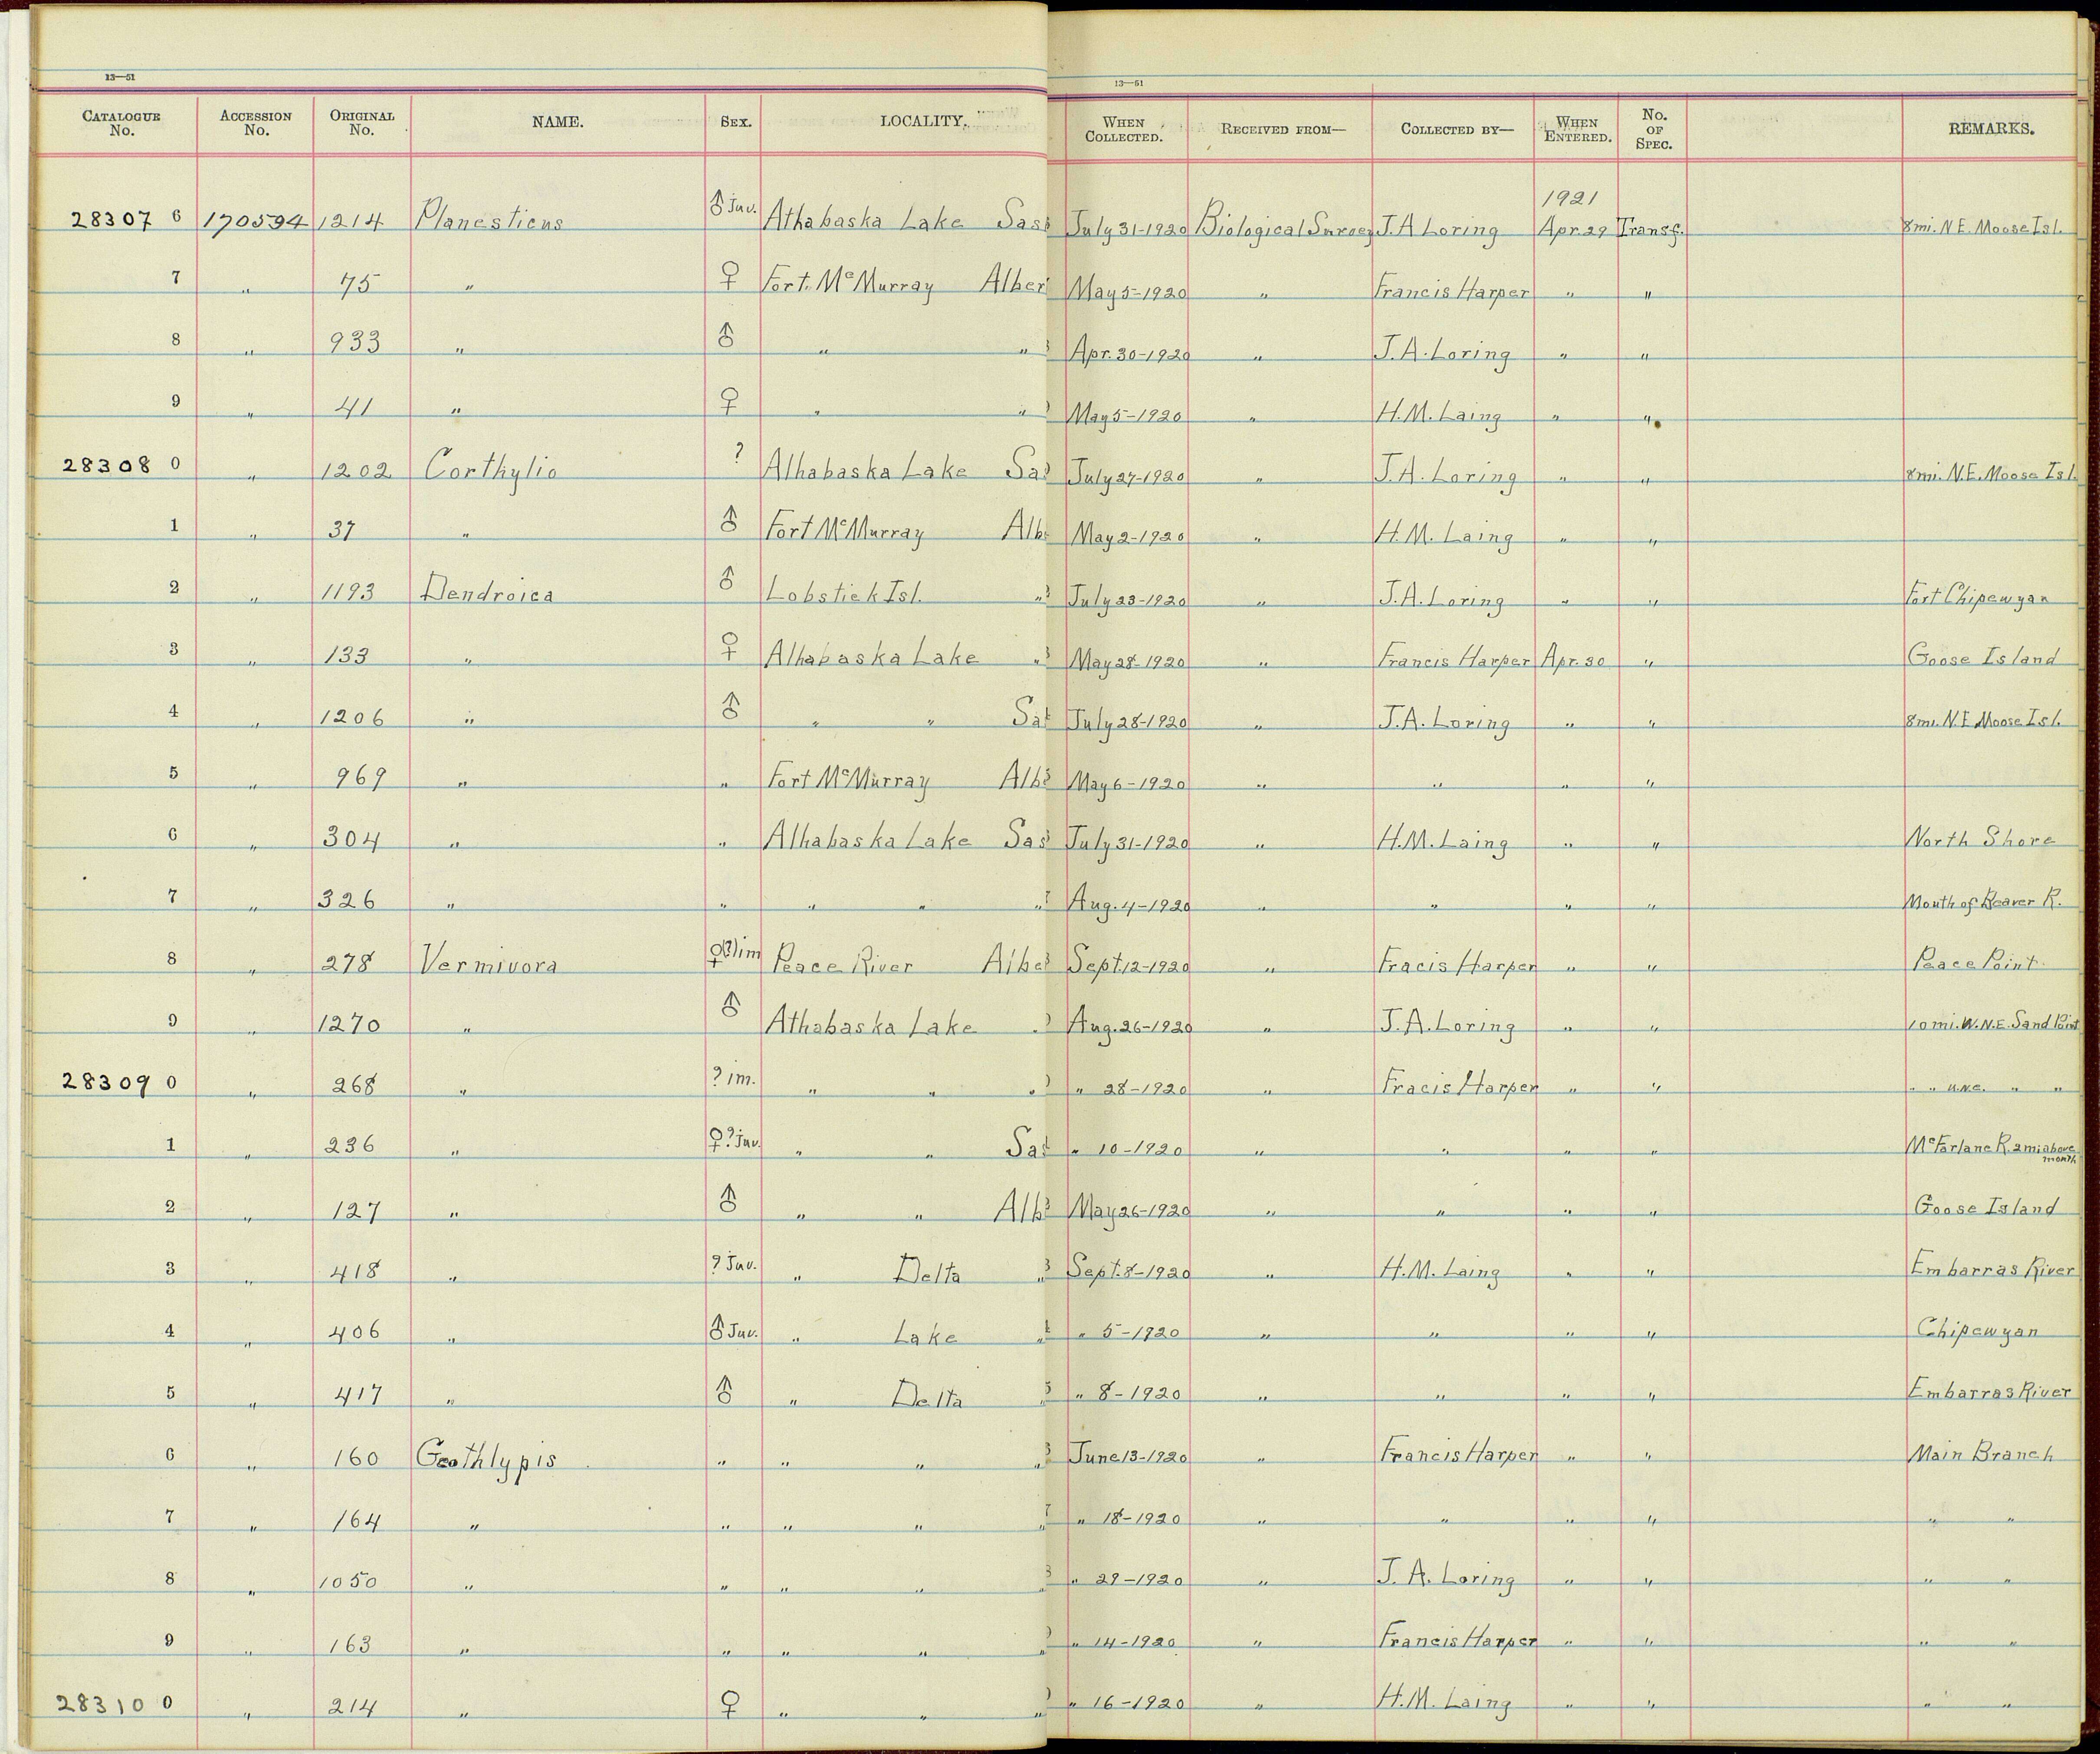 13—51 13—51
CATALOGUE No. ACCESSION No. ORIGINAL No. NAME. SEX. LOCALITY. WHEN COLLECTED. RECEIVED FROM— COLLECTED BY— WHEN ENTERED. No. OF SPEC. REMARKS.
1921
28307 6 170594 1214 Planesticus ♂ Juv. Athabaska Lake Sas July 31-1920 Biological Survey J.A Loring Apr. 29 Transf. 8 mi. N.E. Moose Isl.
7 " 75 " ♀ Fort McMurray Alber May 5-1920 " Francis Harper " "
8 " 933 " ♂ " " Apr. 30-1920 " J.A. Loring " "
9 " 41 " ♀ " " May 5-1920 " H.M. Laing " "
28308 0 " 1202 Corthylio ? Athabaska Lake Sas July 27-1920 " J.A. Loring " " 8 mi. N.E. Moose Isl.
1 " 37 " ♂ Fort McMurray Alb May 2-1920 " H.M. Laing " "
2 " 1193 Dendroica ♂ Lobstick Isl. " July 23-1920 " J.A. Loring " " Fort Chipewyan
3 " 133 " ♀ Athabaska Lake " May 28-1920 " Francis Harper Apr. 30 " Goose Island
4 " 1206 " ♂ " " Sas July 28-1920 " J.A. Loring " " 8 mi. N.E Moose Isl.
5 " 969 " " Fort McMurray Alb May 6-1920 " " " "
6 " 304 " " Athabaska Lake Sas July 31-1920 " H.M. Laing " " North Shore
7 " 326 " " " " " Aug. 4-1920 " " " " Mouth of Beaver R.
8 " 278 Vermivora ♀(?)im Peace River Albe Sept. 12-1920 " Fracis Harper " " Peace Point
9 " 1270 " ♂ Athabaska Lake " Aug. 26-1920 " J.A. Loring " " 10 mi. W.N.E. Sand Point
28309 0 " 268 " ? im. " " " " 28-1920 " Fracis Harper " " " " " "
1 " 236 " ♀? Juv. " " Sas " 10-1920 " " " " McFarlane R. 2 mi above
mouth
2 " 127 " ♂ " " Alb May 26-1920 " " " " Goose Island
3 " 418 " ? Juv. " Delta " Sept. 8-1920 " H.M. Laing " " Embarras River
4 " 406 " ♂ Juv. " Lake " " 5-1920 " " " " Chipewyan
5 " 417 " ♂ " Delta " " 8-1920 " " " " Embarras River
6 " 160 Geothlypis " " " " June 13-1920 " Francis Harper " " Main Branch
7 " 164 " " " " " " 18-1920 " " " " " "
8 " 1050 " " " " " " 29-1920 " J.A. Loring " " " "
9 " 163 " " " " " " 14-1920 " Francis Harper " " " "
28310 0 " 214 " ♀ " " " " 16-1920 " H.M. Laing " " " "